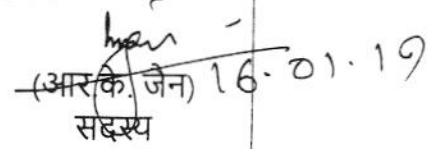 (आर.के. जेन) 16.01.19
सदस्य